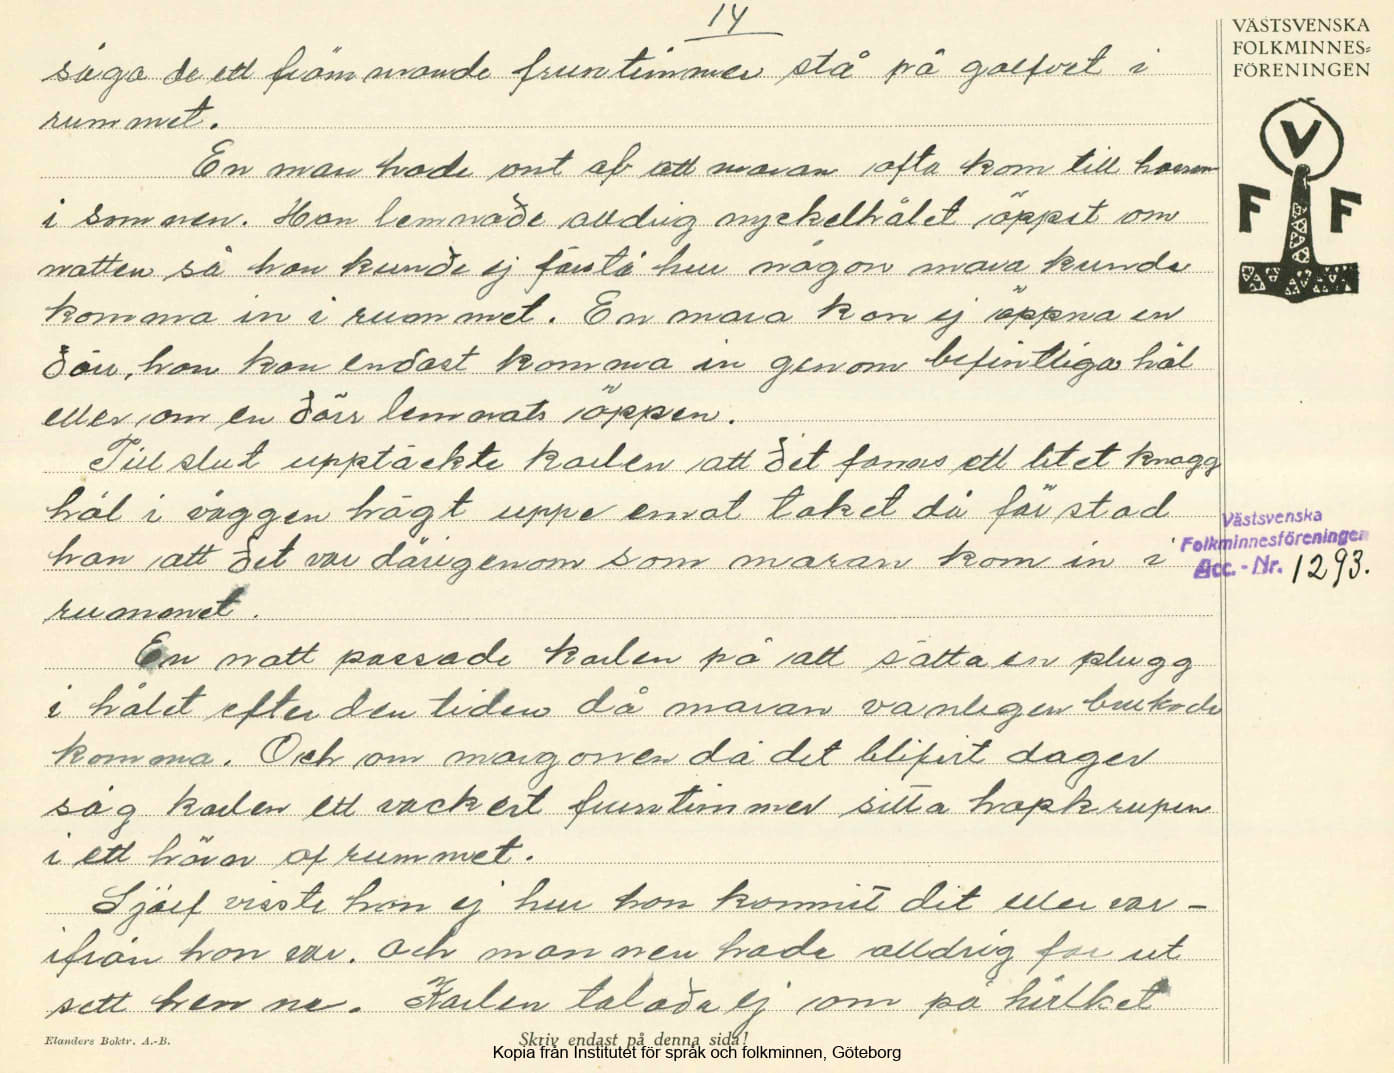 14
såga de ett främmande fruntimmer stå på golfvet i
rummet.
En man hade ont af att maran ofta kom till honom
i sömnen. Han lemnade alldrig nyckelhålet öppet om
natten så han kunde ej förstå hur någon mara kunde
komma in i rummet. En mara kan ej öppna en
dörr, hon kan endast komma in genom befintliga hål
eller om en dörr lemnats öppen.
Till slut upptäckte karlen att det fanns ett litet knagg
hål i väggen högt uppe emot taket då förstod
han att det var därigenom som maran kom in i
rummet.
En natt passade karlen på att sätta en plugg
i hålet efter den tiden då maran vanligen brukade
komma. Och om morgonen då det blifvit dager
såg karlen ett vackert fruntimmer sitta hopkrupen
i ett hörn af rummet.
Sjelf visste hon ej hur hon kommit dit eller var-
ifrån hon var. Och mannen hade alldrig för ut
sett henne. Karlen talade ej om på hvilket
VÄSTSVENSKA
FOLKMINNES-
FÖRENINGEN
V
F F
Västsvenska
Folkminnesföreningen
Acc.-Nr. 1293.
Elanders Boktr. A.-B.
Skriv endast på denna sida!
Kopia från Institutet för språk och folkminnen, Göteborg